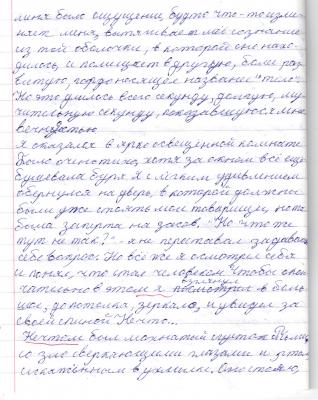 меня было ощущение, будто что-то изме-
няет меня, вытягивает моё сознание
из той оболочки, в которой оно нахо-
дилось, и помещает в другую, более раз
витую, гордо носящее название "тело".
Но это длилось всего секунду, долгую, му-
чительную секунду, показавшуюся мне
вечностью
Я оказался в ярко освещенной комнате
Было очень тихо, хотя за окном всё ещё
бушевала буря Я с лёгким удивлением
обернулся на дверь, в которой должны
были уже стоять мои товарищи, но та
была заперта на засов. "Но что же
тут не так?" - я не переставал задавать
себе вопрос. Но всё же я осмотрел себя
и понял, что стал человеком Чтобы окон
чательно в этом я взглянул в боль-
шое, до потолка, зеркало, и увидел за
своей спиной Нечто...
Нечтом был мохнатый сгусток Тьмы
со зло сверкающими глазами и ртом
в ухмылке. Оно стояло,